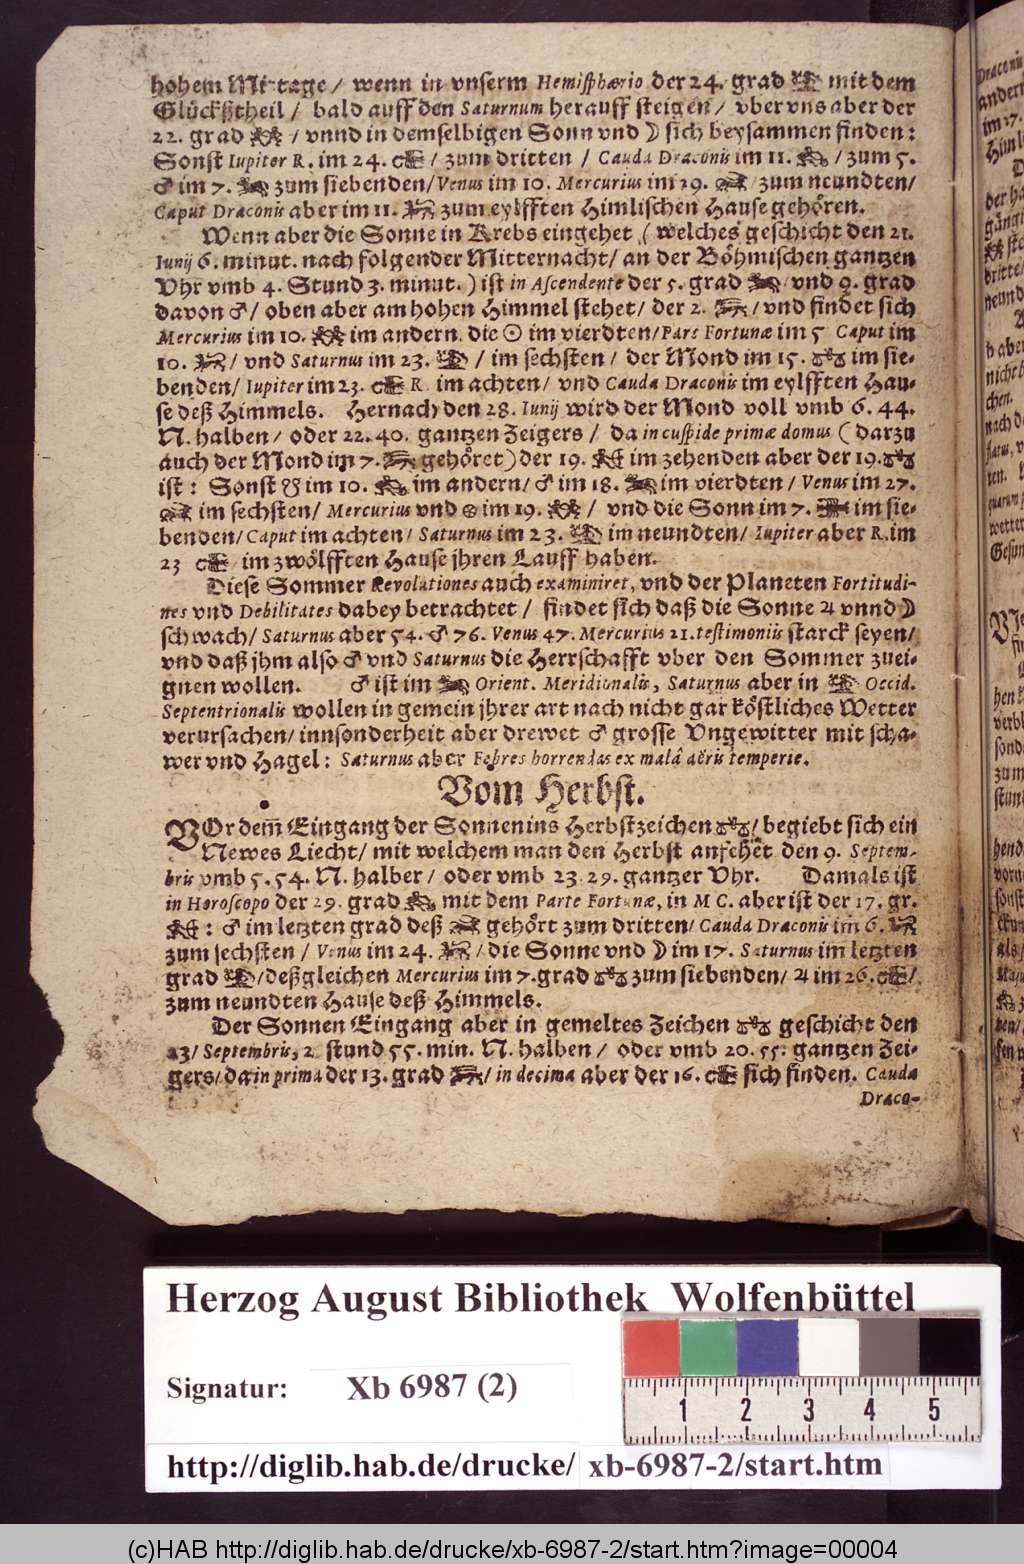 hohem Mittage / wenn in vnserm Hemisphærio der 24. grad mit dem
Glücksztheil / bald auff den Saturnum herauff steigen / vber vns aber der
22. grad ♊ / vnnd in demselbigen Sonn vnd ☽ sich beysammen finden:
Sonst Iupiter R. im 24. / zum dritten / Cauda Draconis im 11. / zum 5.
♂ im 7. zum siebenden / Venus im 10. Mercurius im 29. / zum neundten /
Caput Draconis aber im 11. zum eylfften Himlischen Hause gehören.
Wenn aber die Sonne in Krebs eingehet ( welches geschicht den 21.
Iunij 6. minut. nach folgender Mitternacht / an der Böhmischen gantzen
Vhr vmb 4. Stund 3. minut. ) ist in Ascendente der 5. grad vnd 9. grad
davon ♂ / oben aber am hohen Himmel stehet / der 2. / vnd findet sich
Mercurius im 10. ♊ im andern, die ☉ im vierdten / Pars Fortunæ im 5 Caput im
10. / vnd Saturnus im 23. / im sechsten / der Mond im 15. ♎ im sie-
benden / Iupiter im 23. R. im achten / vnd Cauda Draconis im eylfften Hau-
se deß Himmels. Hernach den 28. Iunij wird der Mond voll vmb 6. 44.
N. halben / oder 22. 40. gantzen Zeigers / da in cuspide primæ domus ( darzu
auch der Mond im 7. gehöret ) der 19. im zehenden aber der 19. ♎
ist: Sonst ☋ im 10. im andern / ♂ im 18. im vierdten / Venus im 27.
im sechsten / Mercurius vnd ⊗ im 19. ♊ / vnd die Sonn im 7. im sie-
benden / Caput im achten / Saturnus im 23. im neundten / Iupiter aber R. im
23 im zwölfften Hause jhren Lauff haben.
Diese Sommer Revolutiones auch examiniret, vnd der Planeten Fortitudi-
nes vnd Debilitates dabey betrachtet / findet sich daß die Sonne ♃ vnnd ☽
schwach / Saturnus aber 54. ♂ 76. Venus 47. Mercurius 21. testimoniis starck seyen /
vnd daß jhm also ♂ vnd Saturnus die Herrschafft vber den Sommer zuei-
gnen wollen. ♂ ist im Orient. Meridionalis, Saturnus aber in Occid.
Septentrionalis wollen in gemein jhrer art nach nicht gar köstliches Wetter
verursachen / innsonderheit aber drewet ♂ grosse Vngewitter mit scha-
wer vnd Hagel: Saturnus aber Febres horrendas ex malâ aëris temperie.
Vom Herbst.
VOr dem̃ Eingang der Sonnen ins Herbstzeichen ♎ / begiebt sich ein
Newes Liecht / mit welchem man den Herbst anfehet den 9. Septem-
bris vmb 5. 54. N. halber / oder vmb 23. 29. gantzer Vhr. Damals ist
in Horoscopo der 29. grad mit dem Parte Fortunæ, in M C. aber ist der 17. gr.
: ♂ im letzten grad deß gehört zum dritten / Cauda Draconis im 6.
zum sechsten / Venus im 24. / die Sonne vnd ☽ im 17. Saturnus im letzten
grad / deßgleichen Mercurius im 7. grad ♎ zum siebenden / ♃ im 26. /
zum neundten Hause deß Himmels.
Der Sonnen Eingang aber in gemeltes Zeichen ♎ geschicht den
23 / Septembris, 2 stund 55. min. N. halben / oder vmb 20. 55. gantzen Zei-
gers / da in prima der 13. grad / in decima aber der 16. sich finden. Cauda
Draco-
Herzog August Bibliothek Wolfenbüttel
Signatur: Xb 6987 (2)
1 2 3 4 5
http://diglib.hab.de/drucke/ xb-6987-2/start.htm
(c)HAB http://diglib.hab.de/drucke/xb-6987-2/start.htm?image=00004